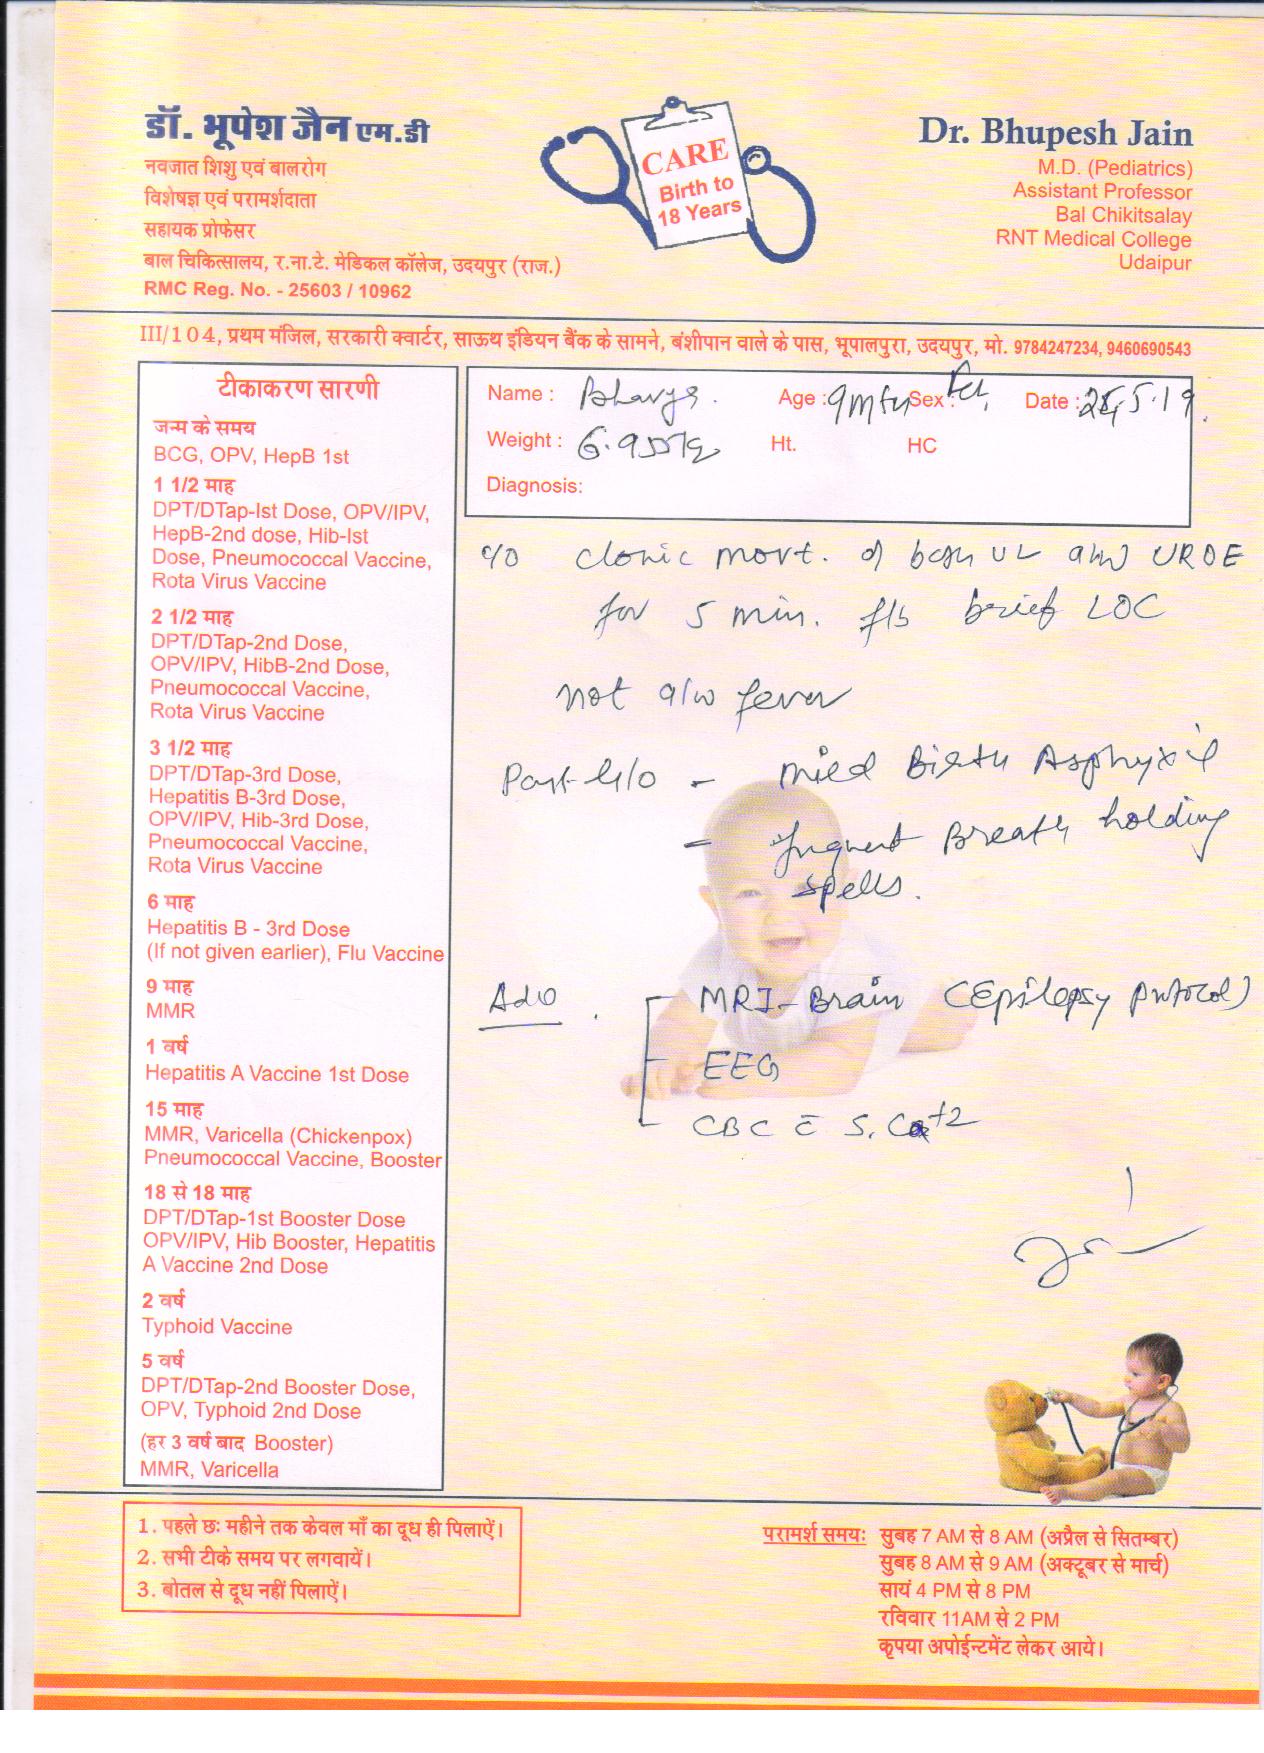 डॉ. भूपेश जैन एम.डी
नवजात शिशु एवं बालरोग
विशेषज्ञ एवं परामर्शदाता
सहायक प्रोफेसर
बाल चिकित्सालय, र.ना.टे. मेडिकल कॉलेज, उदयपुर (राज.)
RMC Reg. No. - 25603 / 10962
CARE
Birth to
18 Years
Dr. Bhupesh Jain
M.D. (Pediatrics)
Assistant Professor
Bal Chikitsalay
RNT Medical College
Udaipur
III/104, प्रथम मंजिल, सरकारी क्वार्टर, साऊथ इंडियन बैंक के सामने, बंशीपान वाले के पास, भूपालपुरा, उदयपुर, मो. 9784247234, 9460690543
टीकाकरण सारणी
जन्म के समय
BCG, OPV, HepB 1st
1 1/2 माह
DPT/DTap-Ist Dose, OPV/IPV,
HepB-2nd dose, Hib-Ist
Dose, Pneumococcal Vaccine,
Rota Virus Vaccine
2 1/2 माह
DPT/DTap-2nd Dose,
OPV/IPV, HibB-2nd Dose,
Pneumococcal Vaccine,
Rota Virus Vaccine
3 1/2 माह
DPT/DTap-3rd Dose,
Hepatitis B-3rd Dose,
OPV/IPV, Hib-3rd Dose,
Pneumococcal Vaccine,
Rota Virus Vaccine
6 माह
Hepatitis B - 3rd Dose
(If not given earlier), Flu Vaccine
9 माह
MMR
1 वर्ष
Hepatitis A Vaccine 1st Dose
15 माह
MMR, Varicella (Chickenpox)
Pneumococcal Vaccine, Booster
18 से 18 माह
DPT/DTap-1st Booster Dose
OPV/IPV, Hib Booster, Hepatitis
A Vaccine 2nd Dose
2 वर्ष
Typhoid Vaccine
5 वर्ष
DPT/DTap-2nd Booster Dose,
OPV, Typhoid 2nd Dose
(हर 3 वर्ष बाद Booster)
MMR, Varicella
Name : Bhavya. Age : 9 mth Sex : Fch, Date : 5.19.
Weight : 6.955 kg Ht. HC
Diagnosis:
c/o clonic movt. of both UL and UROE
for 5 min. f/b brief LOC
not a/w fever
Past H/o - mild Birth Asphyxia
- frequent Breath holding
spells.
Adv. MRI-Brain (Epilepsy protocol)
EEG
CBC c̄ S. Ca+2
1. पहले छः महीने तक केवल माँ का दूध ही पिलाऐं।
2. सभी टीके समय पर लगवायें।
3. बोतल से दूध नहीं पिलाऐं।
परामर्श समयः सुबह 7 AM से 8 AM (अप्रैल से सितम्बर)
सुबह 8 AM से 9 AM (अक्टूबर से मार्च)
सायं 4 PM से 8 PM
रविवार 11AM से 2 PM
कृपया अपोईन्टमेंट लेकर आये।